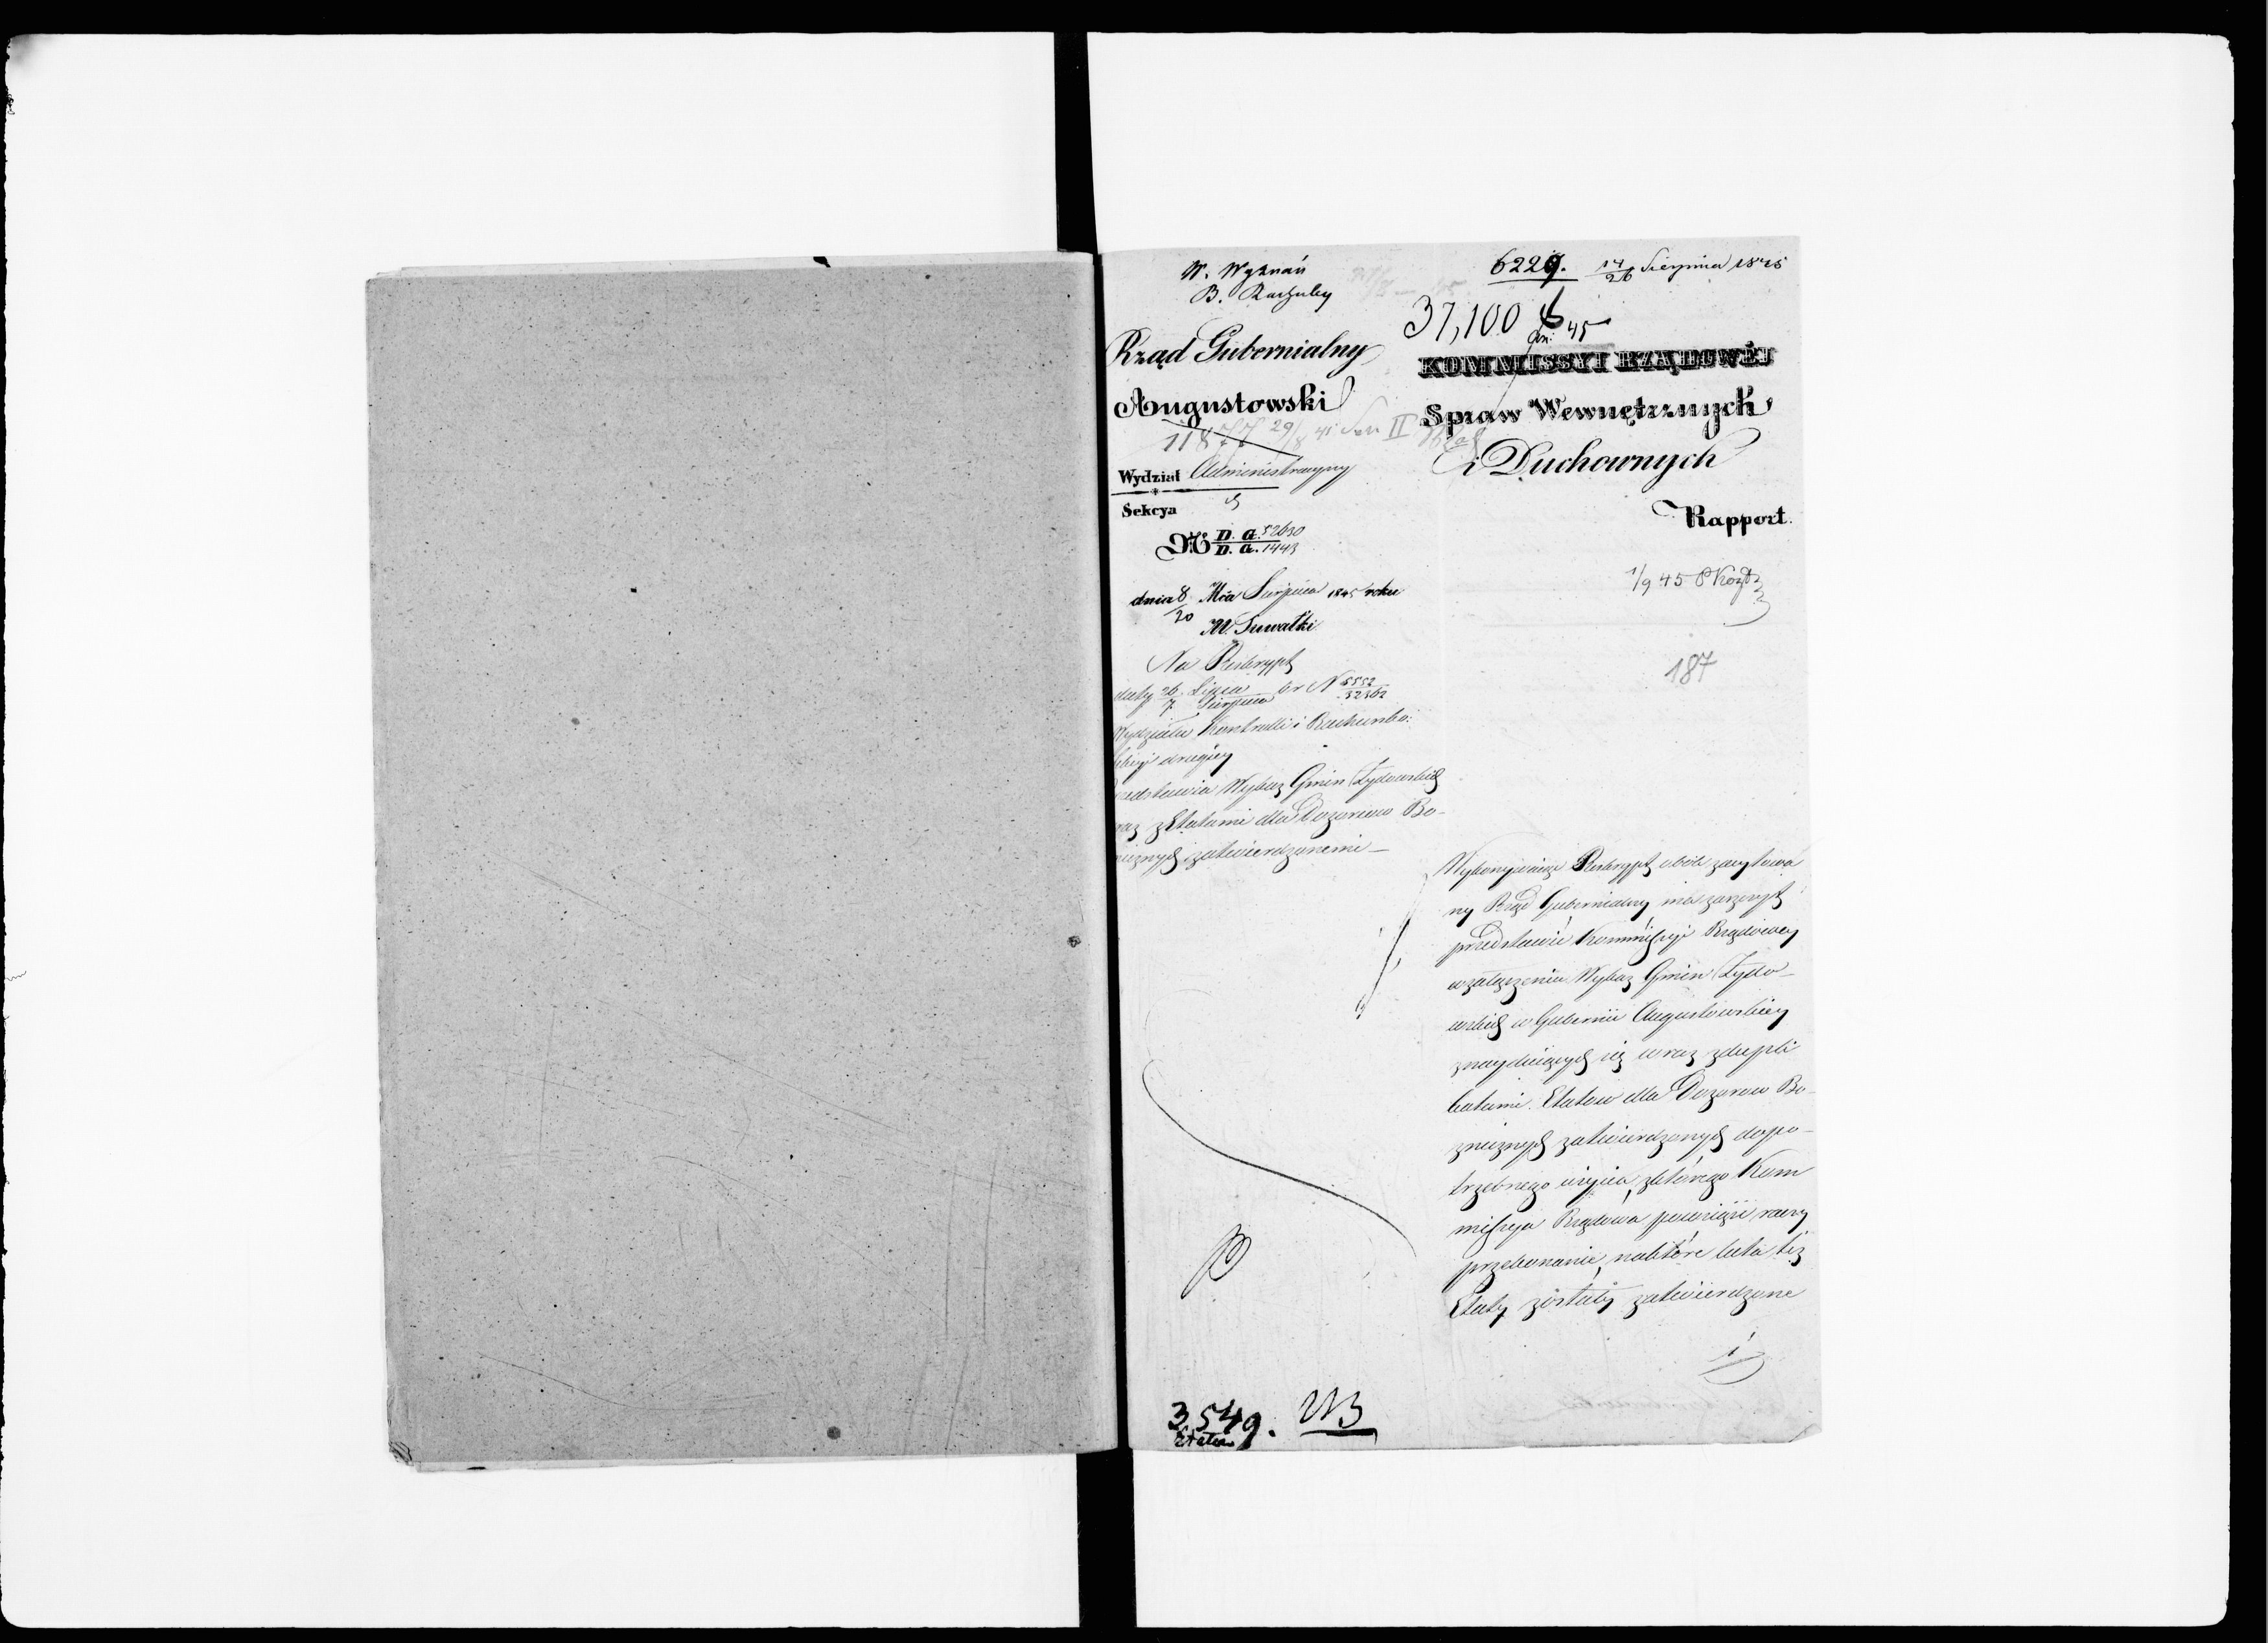 W. Wyznań
6229. 14/26 Sierpnia 1845
37,100
45
Rząd Gubernialny
Augustowski
KOMMISSYI RZĄDOWÉJ
Spraw Wewnętrznych
i Duchownych
Wydział Administracyjny
Sekcya
Rapport.
№ D. a. 52630
D. a. 1443
1/9 45
dnia 8/20 Mca Sierpnia 1845 roku
M. Suwałki
187
Na Reskrypt
daty 26 Lipca / 7 Sierpnia br N 5552/32362
Wydziału Kontrolli i Rachunko:
drugiey
Wykaz Gmin Żydowskich
z Etatami dla Dozorow Bo-
zatwierdzonemi —
Wykonywaiąc Reskrypt obok zacytowa
ny Rząd Gubernialny ma zaszczyt
przedstawić Kommissyi Rządowey
w załączeniu Wykaz Gmin Żydo-
wskich w Gubernii Augustowskiey
znayduiących się wraz z dupli
katami Etatow dla Dozorow Bo-
zniczych zatwierdzonych do po-
trzebnego użycia, z którego Kom
missya Rządowa powziąść raczy
przekonanie, na które lata też
Etaty zostały zatwierdzone
3549.